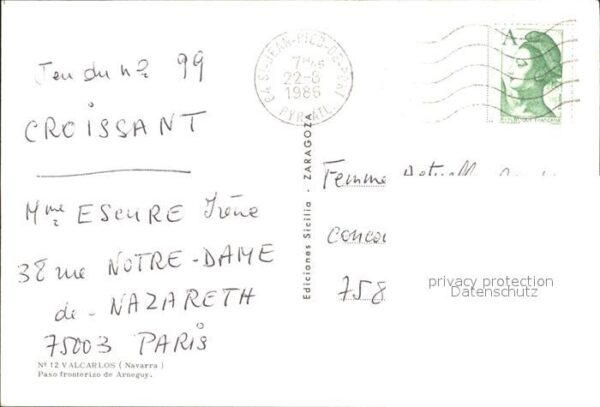 Jeu du nº 99
CROISSANT
Mme ESCURE Irène
38 rue NOTRE-DAME
de - NAZARETH
75003 PARIS
Nº 12 VALCARLOS (Navarra)
Paso fronterizo de Arneguy.
64 St-JEAN-PIED-DE-PORT
22-8
1986
PYR-ATL.
Ediciones Sicilia - ZARAGOZA
A
Femme
conco
758
privacy protection
Datenschutz